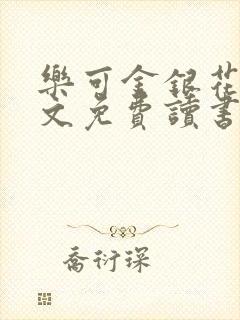 樂可金銀花
文免費讀書
喬衍琛